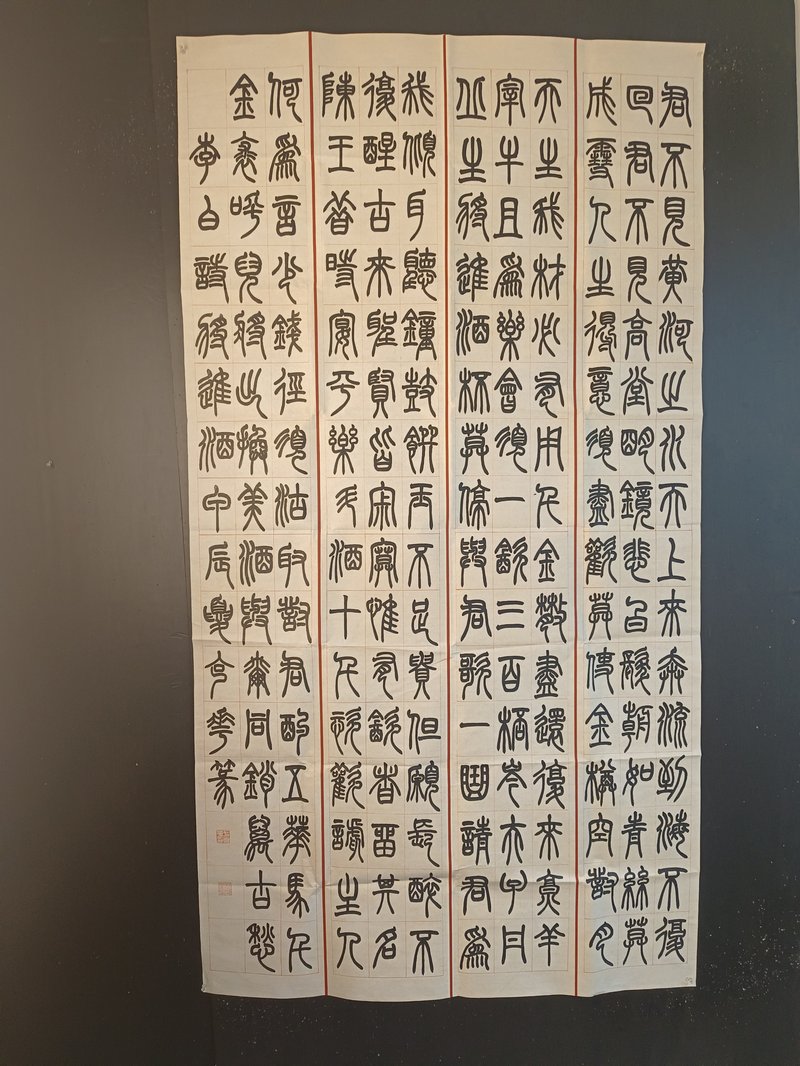 君不見黃河之水天上來奔流到海不復
回君不見高堂明鏡悲白髮朝如青絲莫
成雪人生得意須盡歡莫使金樽空對月
天生我材必有用千金散盡還復來烹羊
宰牛且爲樂會須一飲三百杯岑夫子丹
丘生將進酒杯莫停與君歌一曲請君爲
我傾耳聽鐘鼓饌玉不足貴但願長醉不
復醒古來聖賢皆寂寞惟有飲者留其名
陳王昔時宴平樂斗酒十千恣歡謔主人
何爲言少錢徑須沽取對君酌五華馬千
金裘呼兒將出換美酒與爾同銷萬古愁
李白詩將進酒甲辰夏華篆